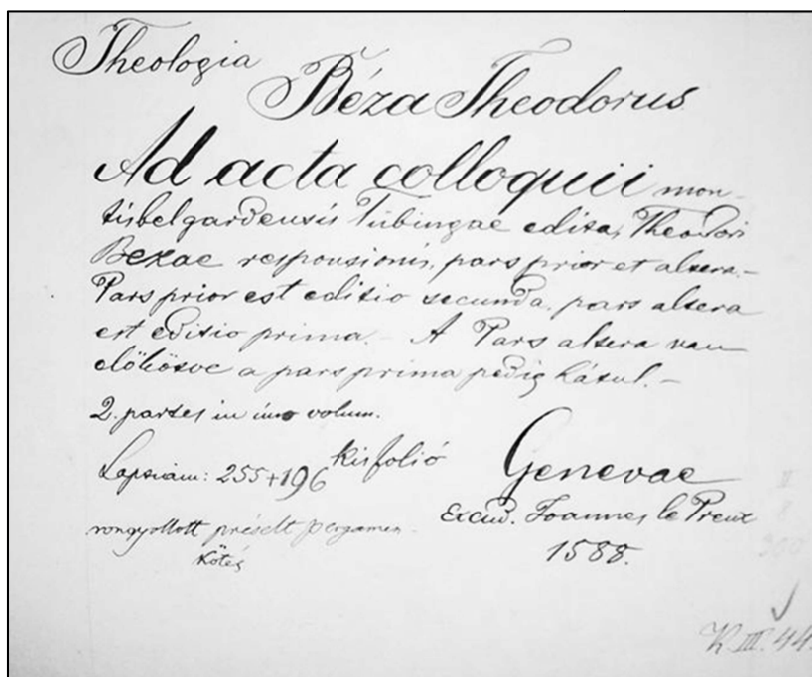 Theologia
Béza Theodorus
Ad acta colloquii mon-
tisbelgardensis Tubingae edita, Theodori
Bezae responsionis, pars prior et altera.-
Pars prior est editio secunda, pars altera
est editio prima. - A Pars altera van
előkötve a pars prima pedig hátul. -
2. partes in uno volum.
Lapszám: 255+196 kisfolió
Genevae
Excud. Joannes le Preux
1588.
rongyollott préselt pergamen-
kötés
K. III. 44.